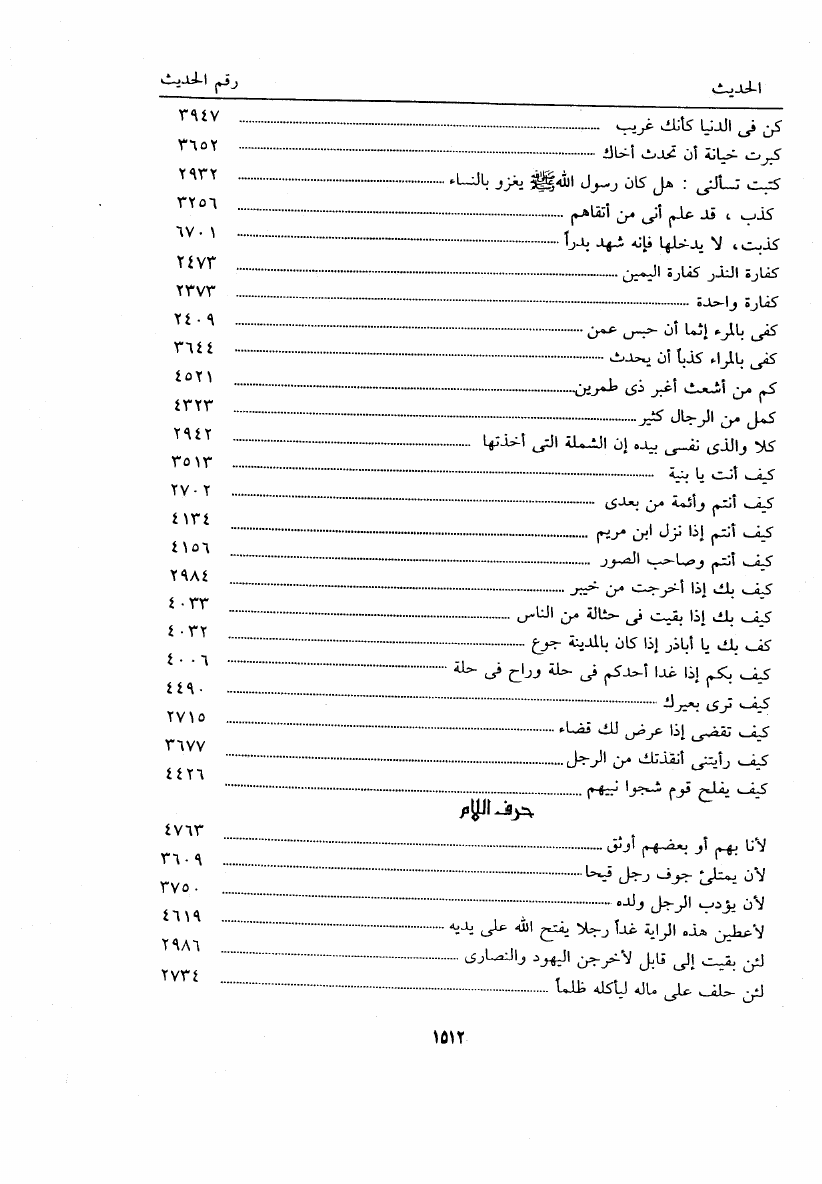 الحديث رقم الحديث
كن فى الدنيا كأنك غريب ٣٩٤٧
كبرت خيانة أن تحدث أخاك ٣٦٥٢
كتبت تسألنى : هل كان رسول الله ﷺ يغزو بالنساء ٢٩٣٢
كذب ، قد علم أنى من أتقاهم ٣٢٥٦
كذبت، لا يدخلها فإنه شهد بدراً ٦٧٠١
كفارة النذر كفارة اليمين ٢٤٧٣
كفارة واحدة ٢٣٧٣
كفى بالمرء إثما أن حبس عمن ٢٤٠٩
كفى بالمراء كذباً أن يحدث ٣٦٤٤
كم من أشعث أغبر ذى طمرين ٤٥٢١
كمل من الرجال كثير ٤٣٢٣
كلا والذى نفسى بيده إن الشملة التى أخذتها ٢٩٤٢
كيف أنت يا بنية ٣٥١٣
كيف أنتم وأئمة من بعدى ٢٧٠٢
كيف أنتم إذا نزل ابن مريم ٤١٣٤
كيف أنتم وصاحب الصور ٤١٥٦
كيف بك إذا أخرجت من خيبر ٢٩٨٤
كيف بك إذا بقيت فى حثالة من الناس ٤٠٣٣
كف بك يا أباذر إذا كان بالمدينة جوع ٤٠٣٢
كيف بكم إذا غدا أحدكم فى حلة وراح فى حلة ٤٠٠٦
كيف ترى بعيرك ٤٤٩٠
كيف تقضى إذا عرض لك قضاء ٢٧١٥
كيف رأيتنى أنقذتك من الرجل ٣٦٧٧
كيف يفلح قوم شجوا نبيهم ٤٤٢٦
حرف اللام
لأنا بهم أو بعضهم أوثق ٤٧٦٣
لأن يمتلئ جوف رجل قيحا ٣٦٠٩
لأن يؤدب الرجل ولده ٣٧٥٠
لأعطين هذه الراية غداً رجلا يفتح الله على يديه ٤٦١٩
لئن بقيت إلى قابل لأخرجن اليهود والنصارى ٢٩٨٦
لئن حلف على ماله ليأكله ظلماً ٢٧٣٤
١٥١٢